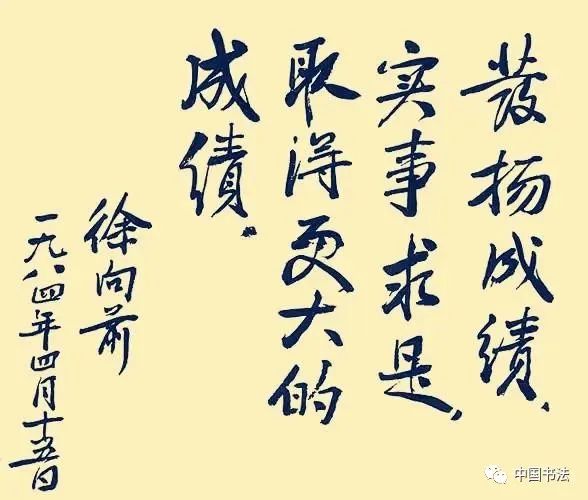 發扬成绩、
实事求是,
取得更大的
成绩.
徐向前
一九八四年四月十五日
中国书法